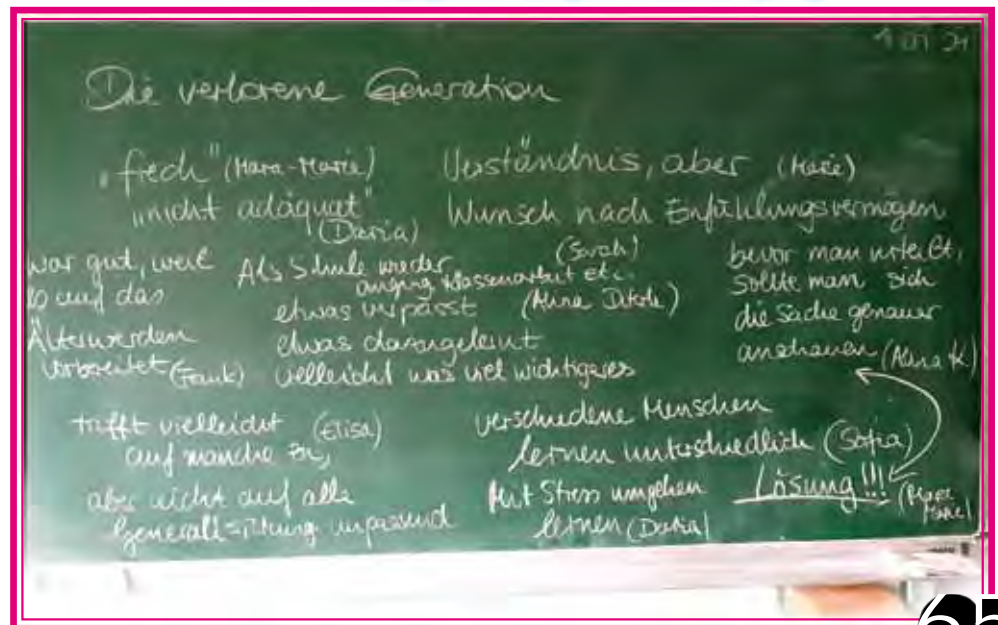 Die verlorene Generation
„frech" (Mara-Marie)
„nicht adäquat"
(Daria)
Verständnis, aber (Marie)
Wunsch nach Einfühlungsvermögen
war gut, weil
es auf das
Älterwerden
vorbereitet
Als Schule wieder (Sarah)
anging Klassenarbeit etc.
etwas verpasst (Alina
etwas dazugelernt
vielleicht was viel wichtigeres
bevor man urteilt,
sollte man sich
die Sache genauer
anschauen (Alina K)
trifft vielleicht (Elisa)
auf manche zu,
aber nicht auf alle
unpassend
verschiedene Menschen
lernen unterschiedlich (Sofia)
Mit Stress umgehen
lernen (Daria)
Lösung!!!
65